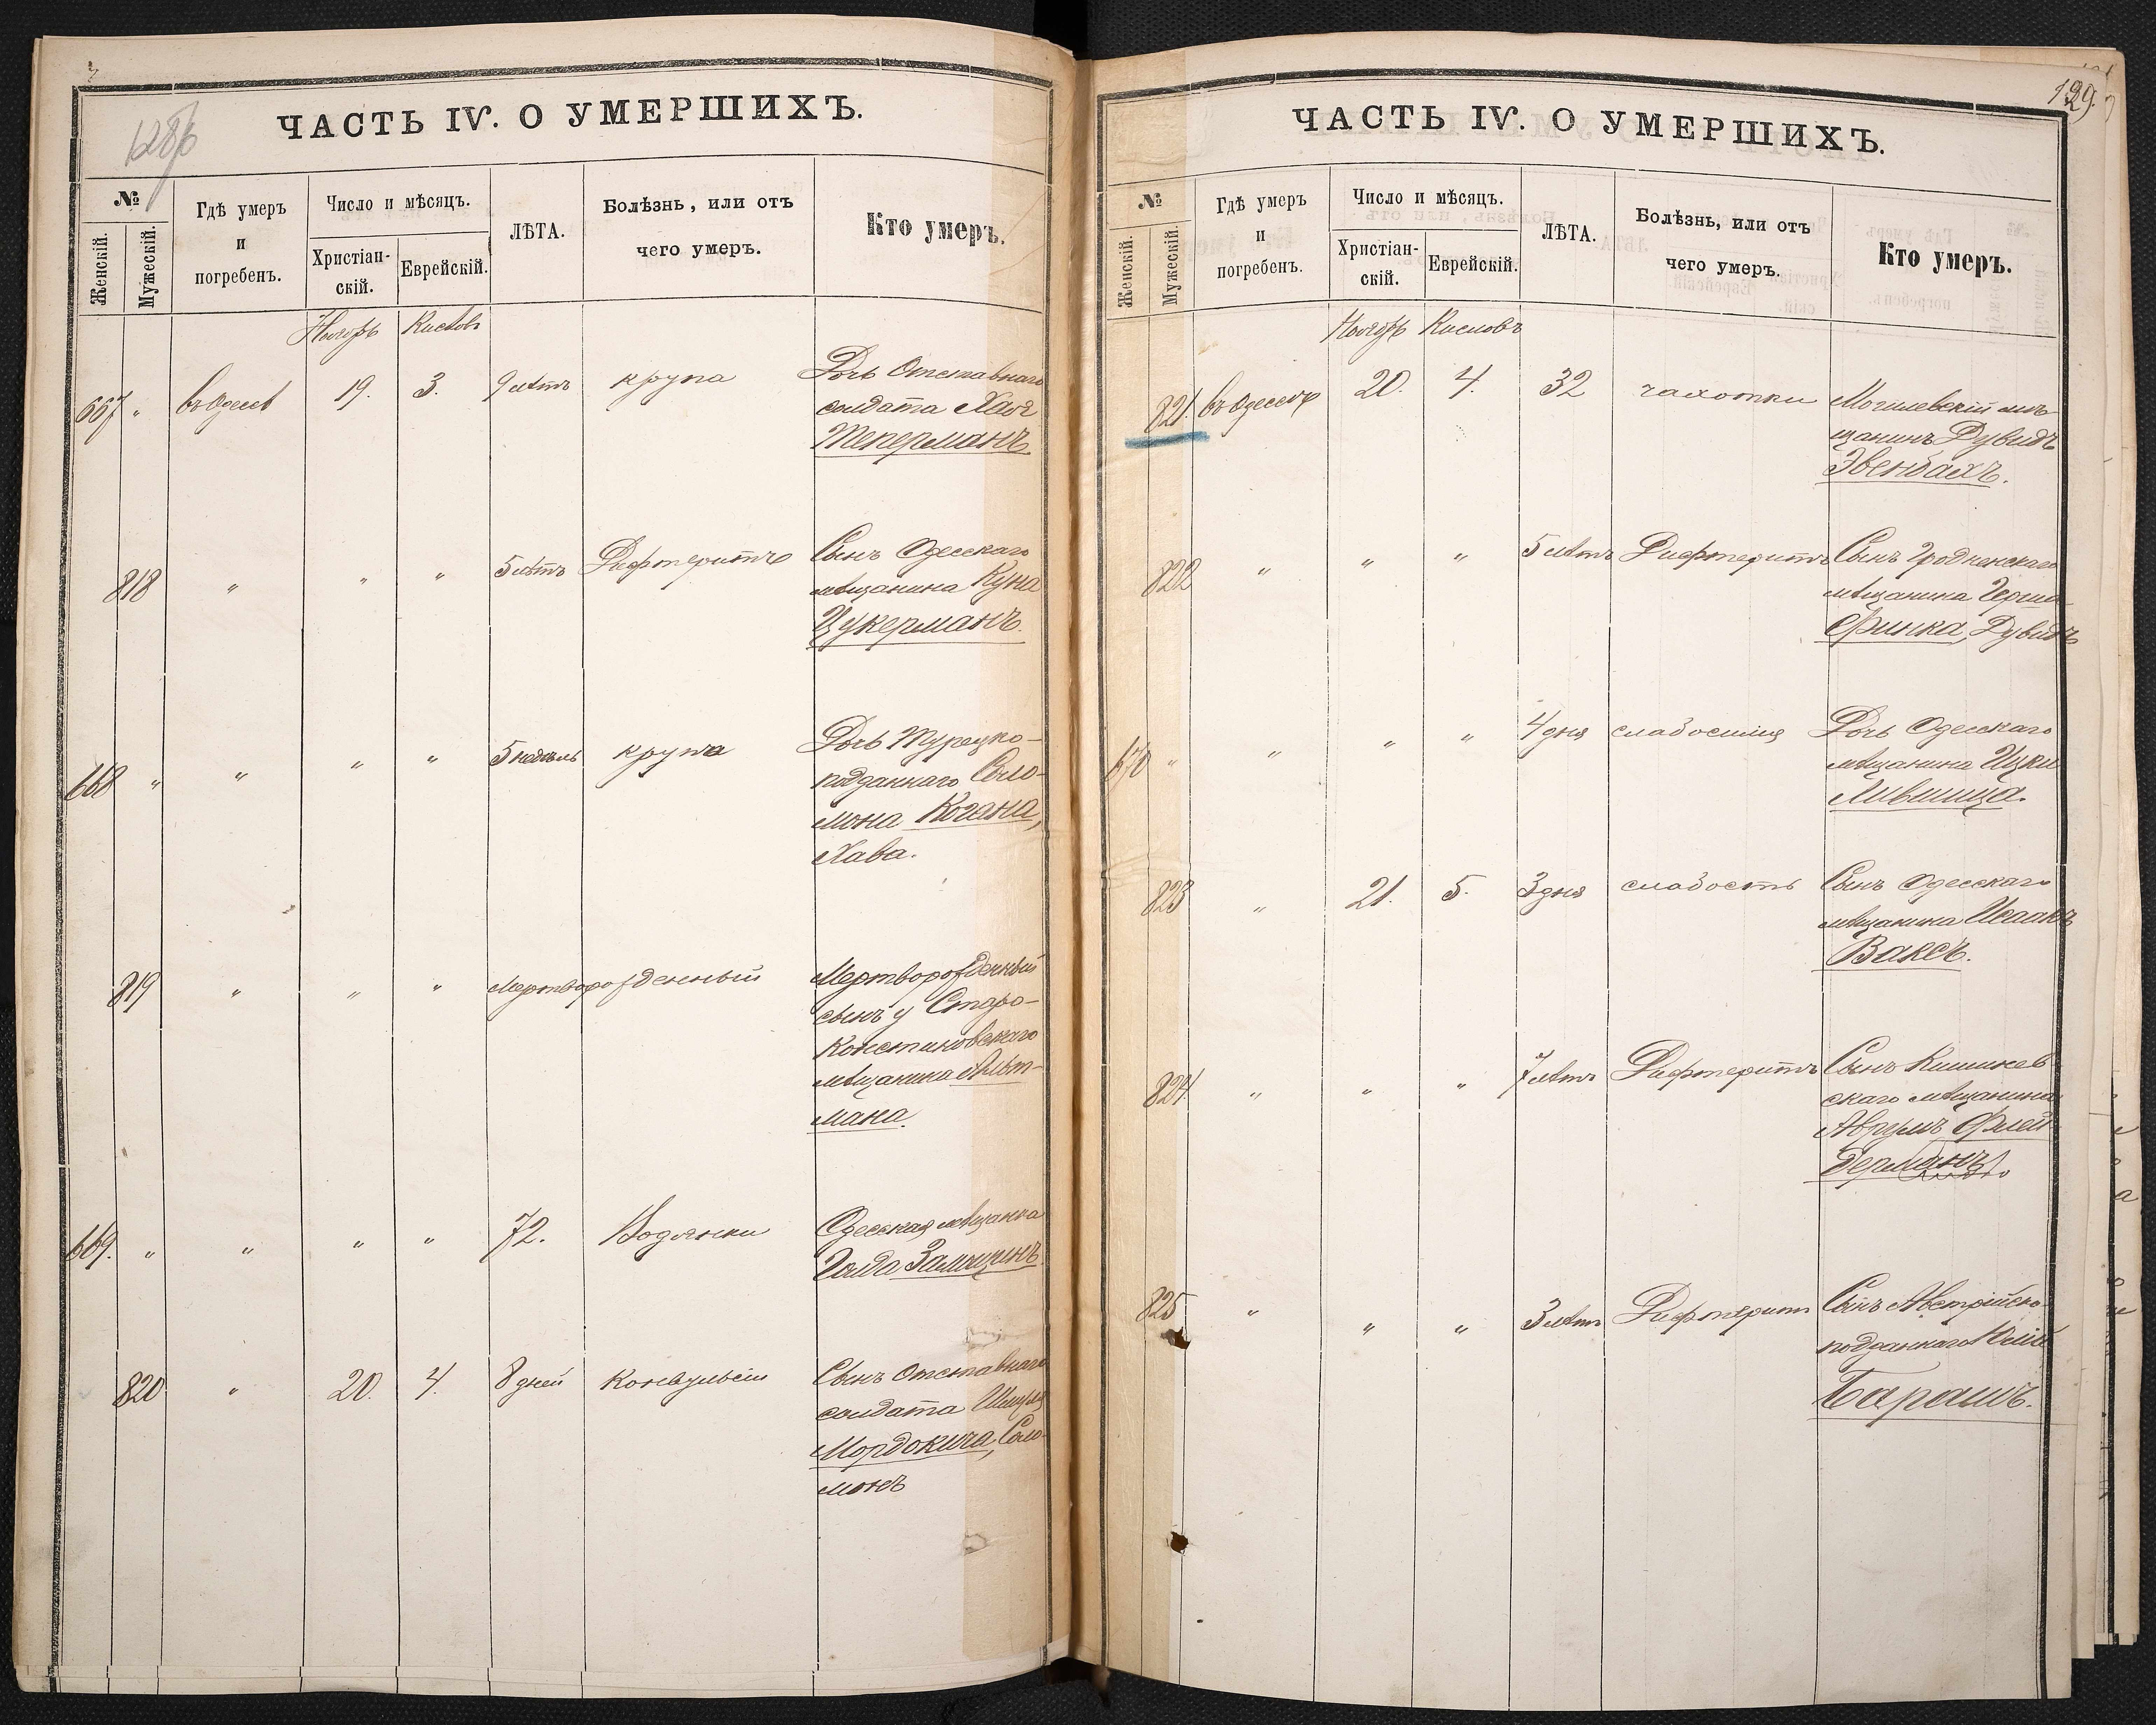 ЧАСТЬ IV. О УМЕРШИХЪ.
№
Женскій.
Мужескій.
Гдѣ умеръ
и
погребенъ.
Число и мѣсяцъ.
Христіан-
скій.
Еврейскій.
ЛѢТА.
Болѣзнь, или отъ
чего умеръ.
Кто умеръ.
Ноябрь Кислевъ
667 " въ Одессѣ 19. 3. 9 лѣтъ крупа Дочь Отставнаго
солдата Хая
Теперманъ.
818 " " " 5 лѣтъ Дифтеритъ Сынъ Одесскаго
мѣщанина Куна
Цукерманъ.
668 " " " " 5 недѣль крупа Дочь Турецко-
подданнаго Соло-
мона Когана,
Хава.
819 " " " Мертворожденный Мертворожденный
сынъ у Старо-
Констиновскаго
мѣщанина Альт-
мана.
669. " " " " 72. Водянки Одесская мѣщанка
Голда
820 " 20. 4. 8 дней Конвульсіи Сынъ Отставнаго
солдата
Мордокича, Соло-
монъ
129.
ЧАСТЬ IV. О УМЕРШИХЪ.
№
Женскій.
Мужескій.
Гдѣ умеръ
и
погребенъ.
Число и мѣсяцъ.
Христіан-
скій.
Еврейскій.
ЛѢТА.
Болѣзнь, или отъ
чего умеръ.
Кто умеръ.
Ноябрь Кислевъ
821. въ Одессѣ 20. 4. 32 чахотки Могилевскій мѣ-
щанинъ Дувидъ
Эвенбахъ.
822 " " " 5 лѣтъ Дифтеритъ Сынъ Гродненскаго
мѣщанина Герша
Финка, Дувидъ
670 " " " " 4 дня слабосилія Дочь Одесскаго
мѣщанина Ицки
Лившица.
823 " 21. 5. 3 дня слабость Сынъ Одесскаго
мѣщанина Исаакъ
Ваксъ.
824. " " " 7 лѣтъ Дифтеритъ Сынъ Кишинев
скаго мѣщанина
Аврумъ Флей
дерманъ.
825 " " " 3 лѣтъ Дифтеритъ Сынъ Австрійско-
подданнаго
Барашъ.